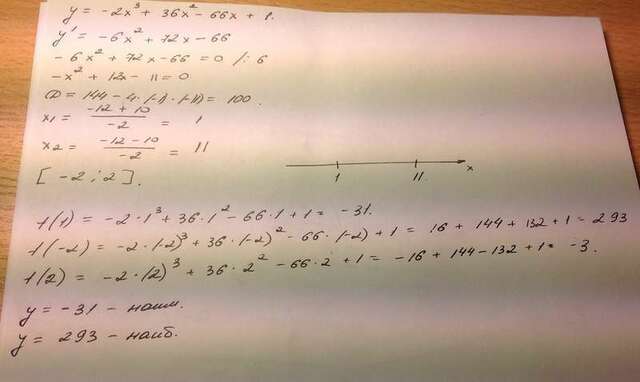 y = -2x³ + 36x² - 66x + 1.
y' = -6x² + 72x - 66
-6x² + 72x - 66 = 0 /: 6
-x² + 12x - 11 = 0
D = 144 - 4 · (-1) · (-11) = 100.
x₁ = (-12 + 10)/(-2) = 1
x₂ = (-12 - 10)/(-2) = 11
[-2; 2].
1 11 x
f(1) = -2 · 1³ + 36 · 1² - 66 · 1 + 1 = -31.
f(-2) = -2 · (-2)³ + 36 · (-2)² - 66 · (-2) + 1 = 16 + 144 + 132 + 1 = 293
f(2) = -2 · (2)³ + 36 · 2² - 66 · 2 + 1 = -16 + 144 - 132 + 1 = -3.
y = -31 - наим.
y = 293 - наиб.